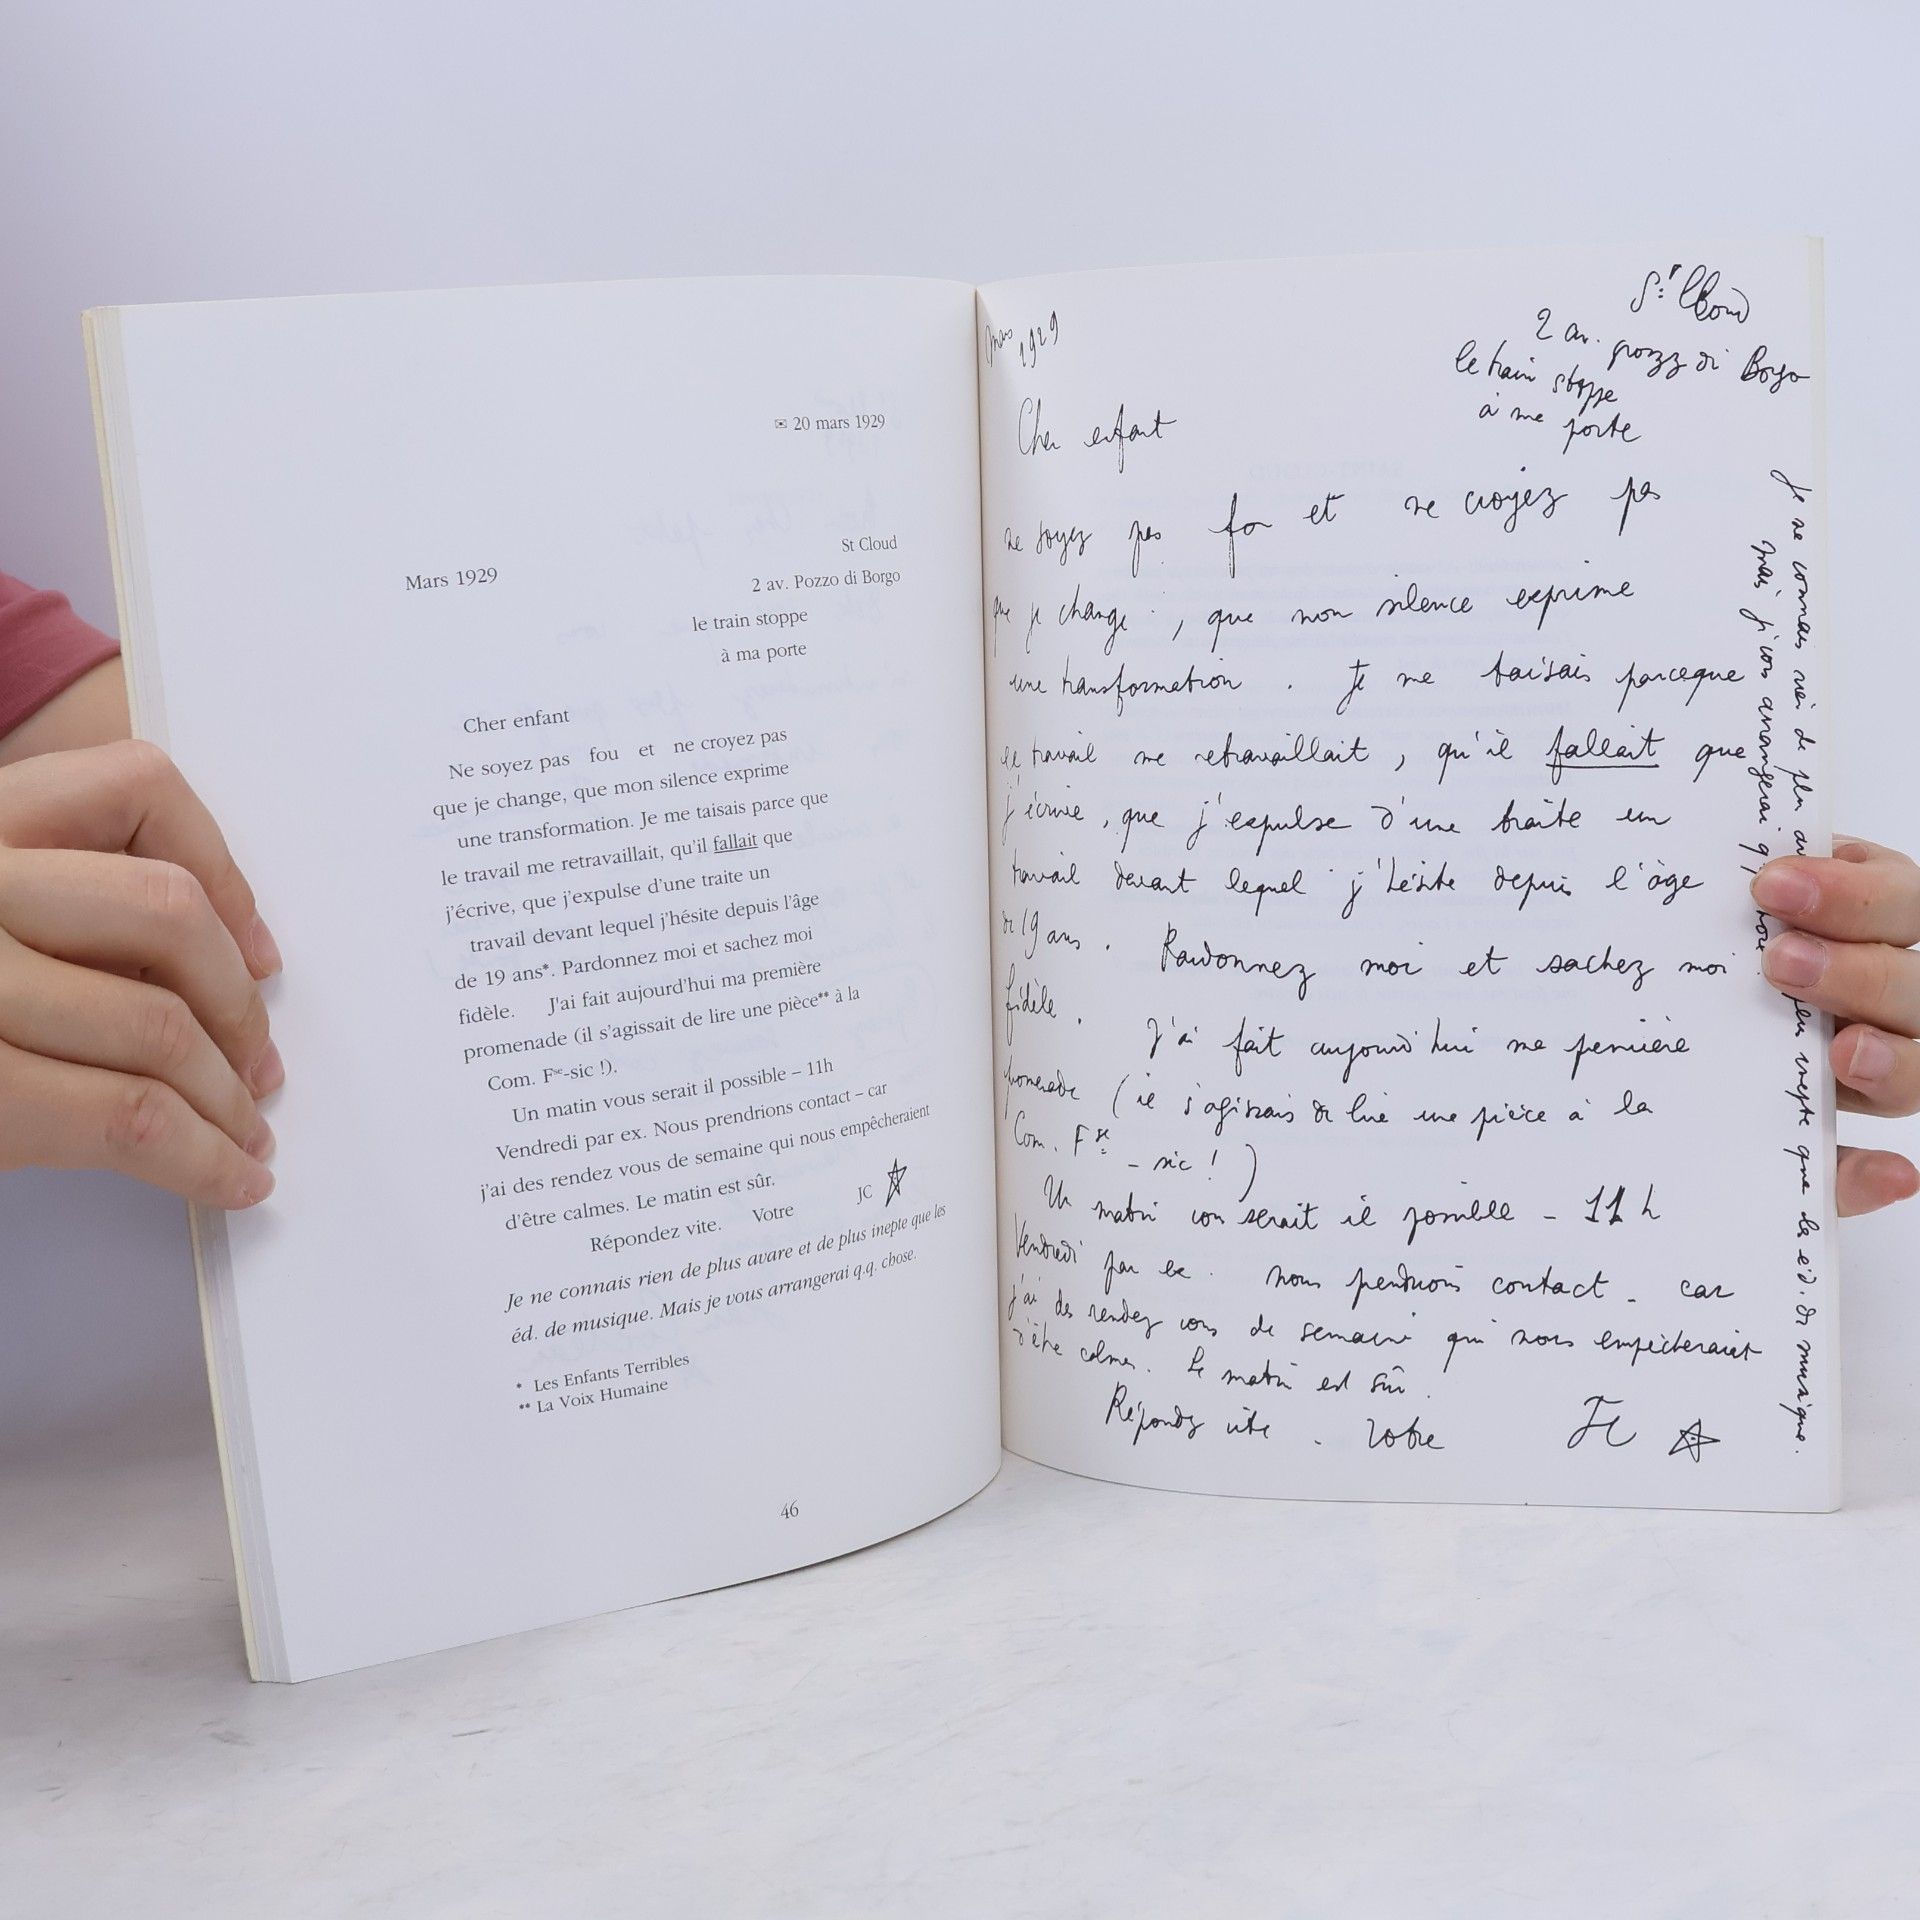 ✉ 20 mars 1929
St Cloud
Mars 1929
2 av. Pozzo di Borgo
le train stoppe
à ma porte
Cher enfant
Ne soyez pas fou et ne croyez pas
que je change, que mon silence exprime
une transformation. Je me taisais parce que
le travail me retravaillait, qu'il fallait que
j'écrive, que j'expulse d'une traite un
travail devant lequel j'hésite depuis l'âge
de 19 ans*. Pardonnez moi et sachez moi
fidèle. J'ai fait aujourd'hui ma première
promenade (il s'agissait de lire une pièce** à la
Com. Fse-sic !).
Un matin vous serait il possible – 11h
Vendredi par ex. Nous prendrions contact – car
j'ai des rendez vous de semaine qui nous empêcheraient
d'être calmes. Le matin est sûr.
Répondez vite. Votre JC
Je ne connais rien de plus avare et de plus inepte que les
éd. de musique. Mais je vous arrangerai q.q. chose.
* Les Enfants Terribles
** La Voix Humaine
46
Mars
1929
St Cloud
2 av. pozzo di Borgo
le train stoppe
à ma porte
Cher enfant
ne soyez pas fou et ne croyez pas
que je change, que mon silence exprime
une transformation. Je me taisais parceque
le travail me retravaillait, qu'il fallait que
j'écrive, que j'expulse d'une traite un
travail devant lequel j'hésite depuis l'âge
de 19 ans. Pardonnez moi et sachez moi
fidèle. J'ai fait aujourd'hui ma première
promenade (il s'agissait de lire une pièce à la
Com. Fse - sic !)
Un matin vous serait il possible - 11 h
Vendredi par ex. nous prendrions contact - car
j'ai des rendez vous de semaine qui nous empêcheraient
d'être calmes. Le matin est sûr.
Répondez vite. Votre JC
Je ne connais rien de plus inepte que les éd. de musique.
mais je vous arrangerai